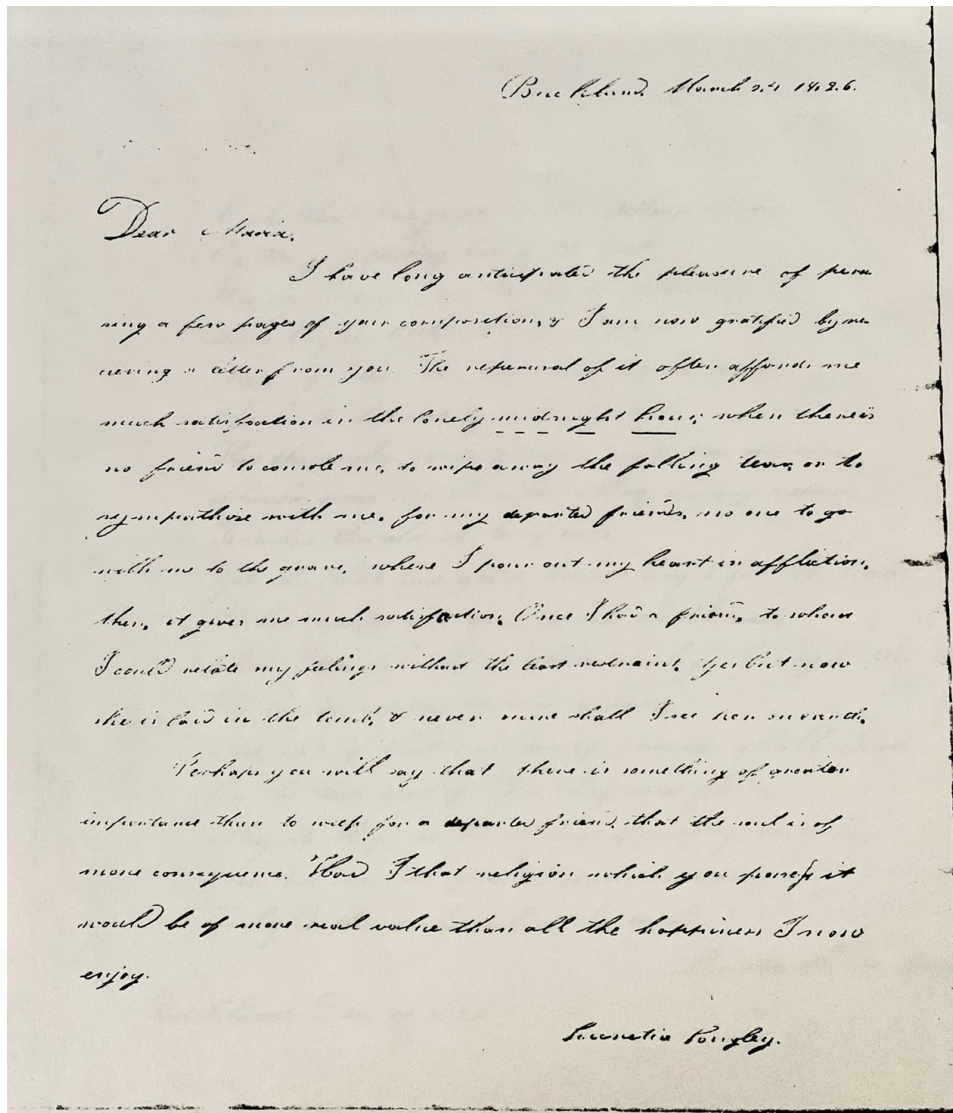 Buckland. March 24 1826.
Dear Maria.
I have long anticipated the pleasure of peru
sing a few pages of your composition, & I am now gratified by re
ceiving a letter from you. The reperusal of it often affords me
much satisfaction in the lonely midnight hour; when there is
no friend to console me, to wipe away the falling tear, or to
sympathise with me, for my departed friends, no one to go
with me to the grave, where I pour out my heart in affliction,
then, it gives me much satisfaction. Once I had a friend, to whom
I could relate my feelings without the least restraint, yes but now
she is laid in the tomb, & never more shall I see her
Perhaps you will say that there is something of greater
importance than to weep for a departed friend, that the soul is of
more consequence. Had I that religion which you possess it
would be of more real value than all the happiness I now
enjoy.
Lucretia Longley.